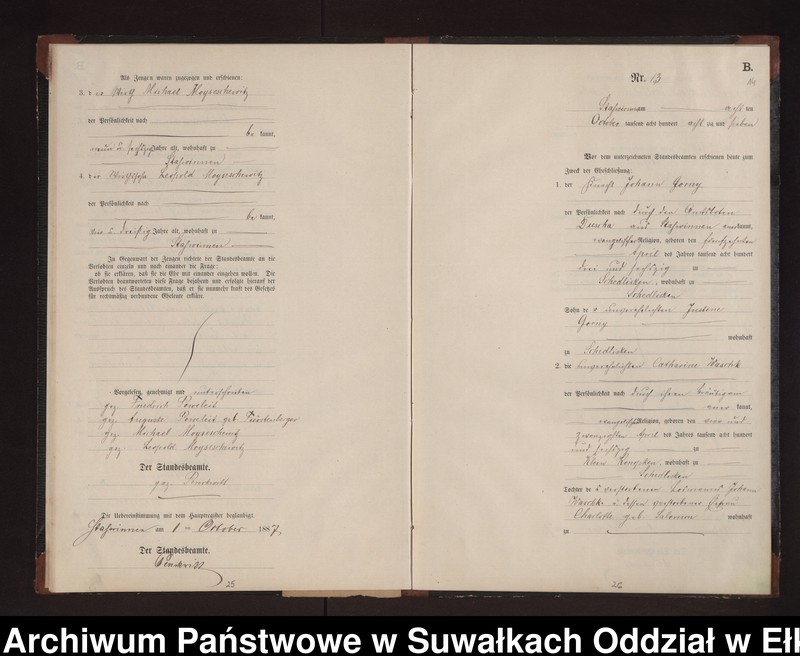 Als Zeugen waren zugezogen und erschienen:
3. der Wirth Michael Moyseschewitz
der Persönlichkeit nach
be kannt,
neun u. sechszig Jahre alt, wohnhaft zu
Staswinnen
4. der Wirthssohn Leopold Moyseschewitz
der Persönlichkeit nach
be kannt,
ein u. dreißig Jahre alt, wohnhaft zu
Staswinnen
In Gegenwart der Zeugen richtete der Standesbeamte an die
Verlobten einzeln und nach einander die Frage:
ob sie erklären, daß sie die Ehe mit einander eingehen wollen. Die
Verlobten beantworteten diese Frage bejahend und erfolgte hierauf der
Ausspruch des Standesbeamten, daß er sie nunmehr kraft des Gesetzes
für rechtmäßig verbundene Eheleute erkläre.
Vorgelesen, genehmigt und unterschrieben
gez. Friedrich
gez. Auguste geb.
gez. Michael Moyseschewitz
gez. Leopold Moyseschewitz
Der Standesbeamte.
gez.
Die Uebereinstimmung mit dem Hauptregister beglaubigt.
Staswinnen am 1 ten October 1887.
Der Standesbeamte.
25
B.
Nr. 13
Staswinnen am acht ten
October tausend acht hundert acht zig und sieben
Vor dem unterzeichneten Standesbeamten erschienen heute zum
Zweck der Eheschließung:
1. der Knecht Johann Gorny
der Persönlichkeit nach durch den Amtsboten
Duscha aus Staswinnen anerkannt,
evangelischer Religion, geboren den fünfzehnten
April des Jahres tausend acht hundert
drei und sechszig zu
Schedlisken, wohnhaft zu
Schedlisken
Sohn der unverehelichten Justine
Gorny
wohnhaft
zu Schedlisken
2. die unverehelichte Catharine
der Persönlichkeit nach durch ihren Bräutigam
aner kannt,
evangelischer Religion, geboren den vier und
zwanzigsten April des Jahres tausend acht hundert
und sechszig zu
Klein, wohnhaft zu
Schedlisken
Tochter des verstorbenen Losmanns Johann
u. dessen verstorbenen Ehefrau
Charlotte geb. Salomon wohnhaft
zu
26
Archiwum Państwowe w Suwałkach Oddział w Ełk